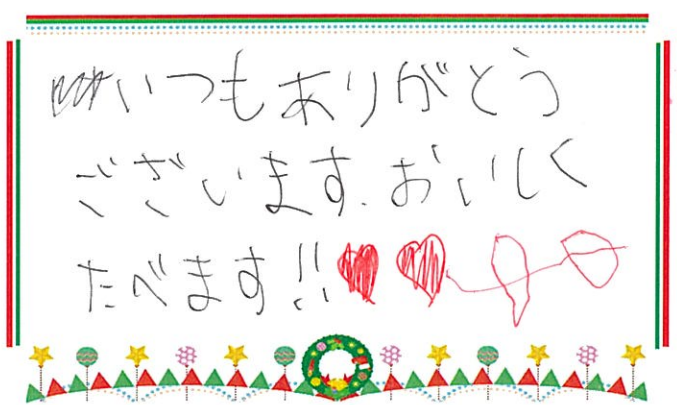 いつもありがとう
ございます.おいしく
たべます!!